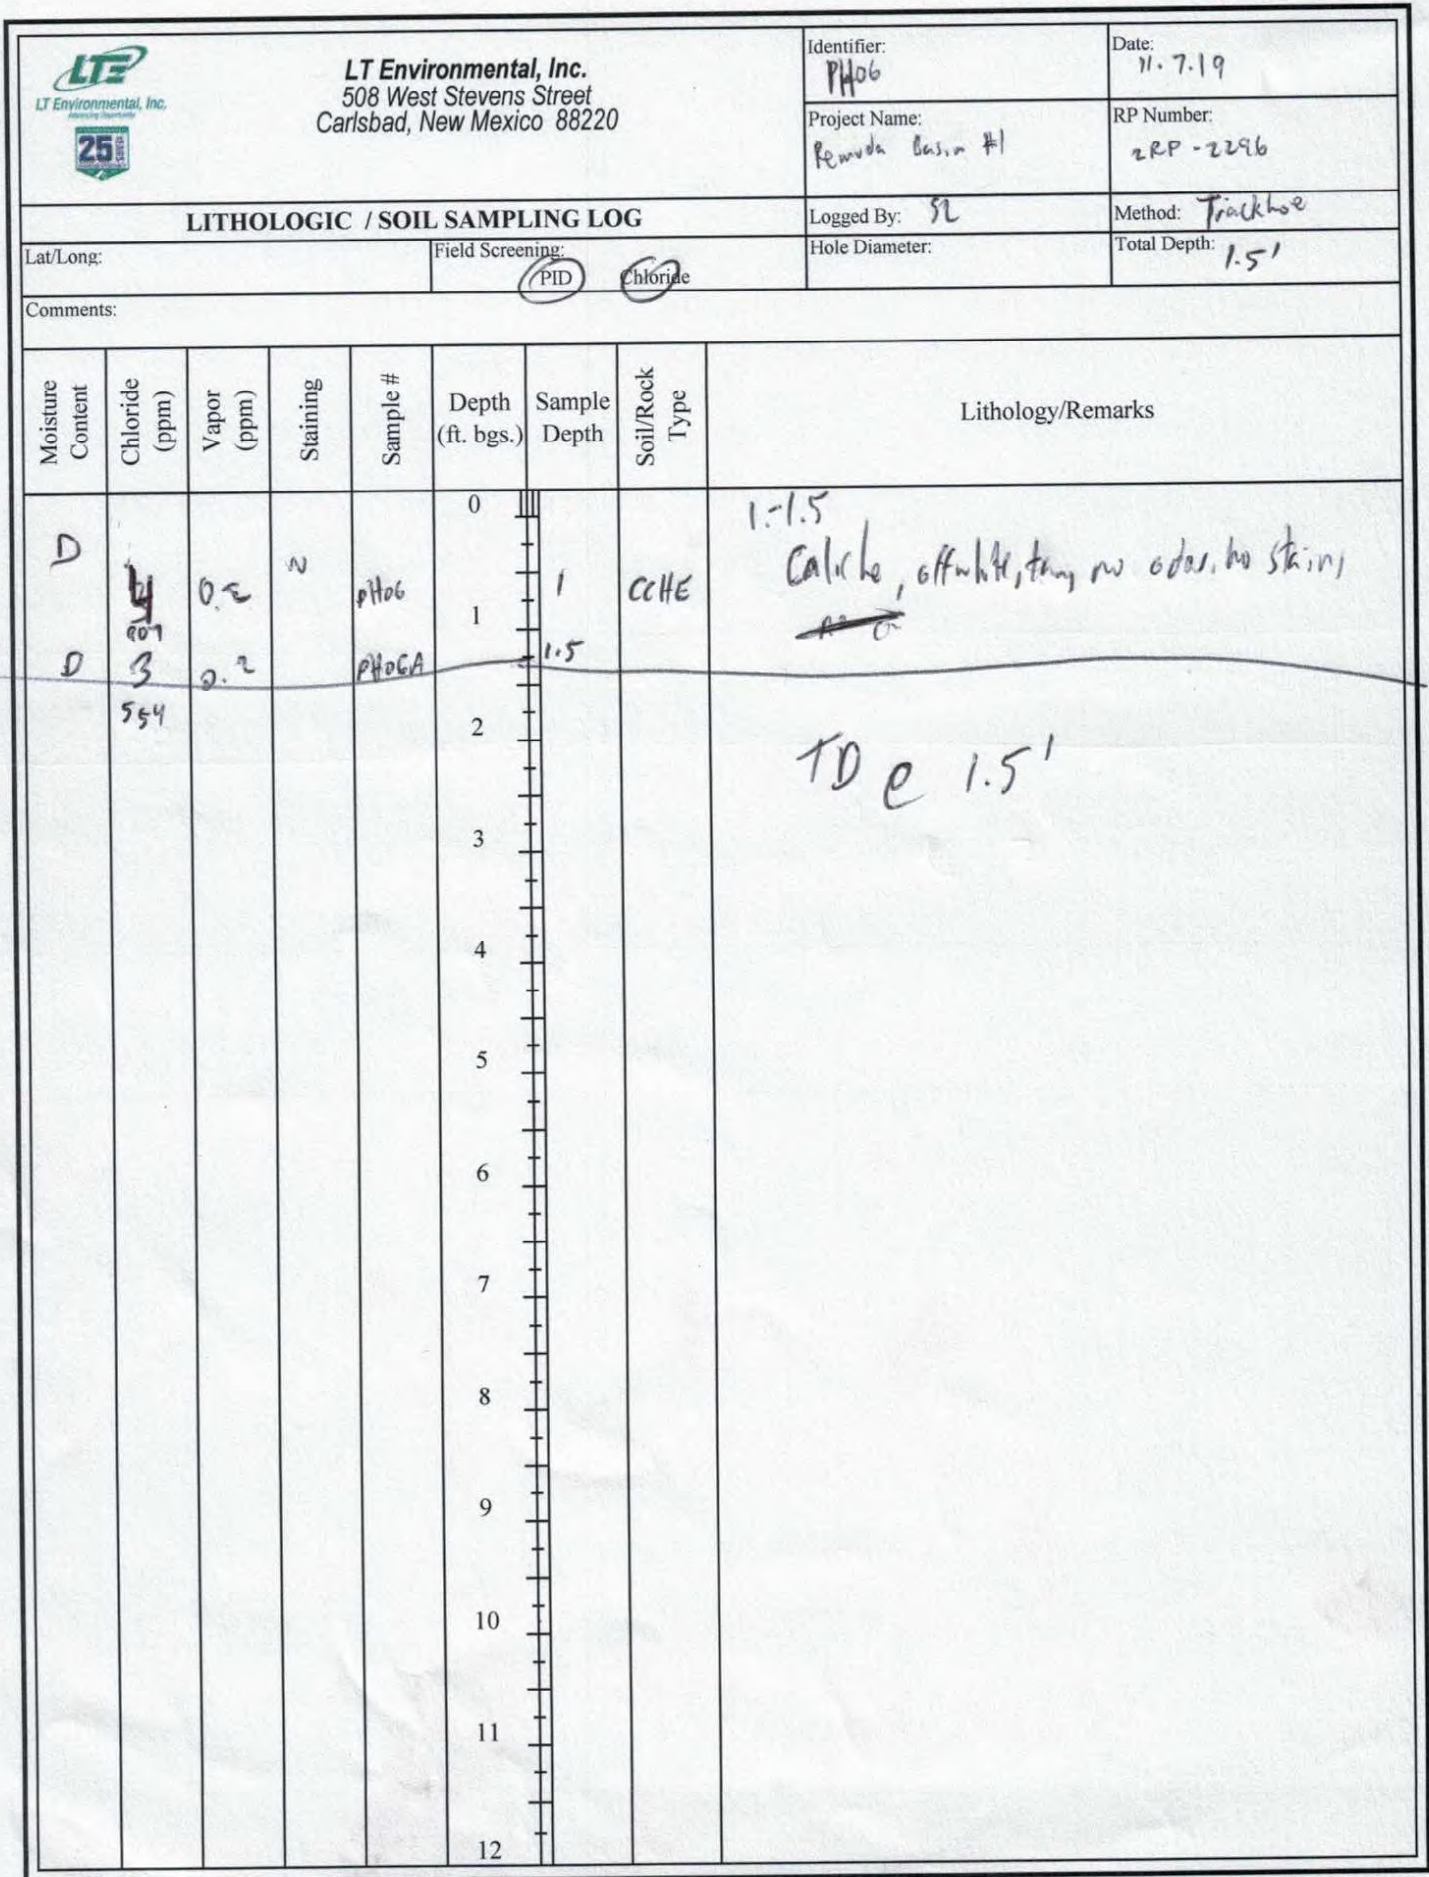 LTE
LT Environmental, Inc.
Advancing Opportunity
25 YEARS
LT Environmental, Inc.
508 West Stevens Street
Carlsbad, New Mexico 88220
Identifier:
PH06
Date:
11.7.19
Project Name:
Remuda Basin #1
RP Number:
2RP-2296
LITHOLOGIC / SOIL SAMPLING LOG
Logged By: SL
Method: Trackhoe
Lat/Long:
Field Screening:
PID Chloride
Hole Diameter:
Total Depth: 1.5'
Comments:
Moisture Content
Chloride (ppm)
Vapor (ppm)
Staining
Sample #
Depth (ft. bgs.)
Sample Depth
Soil/Rock Type
Lithology/Remarks
0
1.-1.5
D N PH06 1 CCHE Caliche, offwhite, tan, no odor, no stain,
1
D 3 0.2 PH06A 1.5
554
2
TD @ 1.5'
3
4
5
6
7
8
9
10
11
12